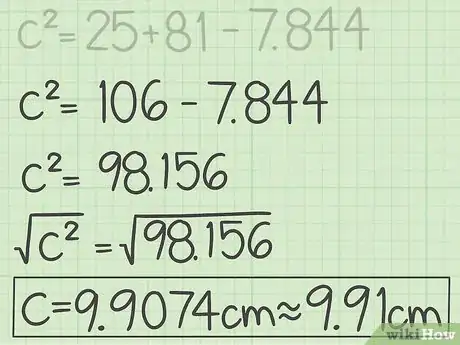 C²= 25+81 - 7.844
C²= 106 - 7.844
C²= 98.156
√C² = √98.156
C=9.9074cm≈9.91cm
wikiHow